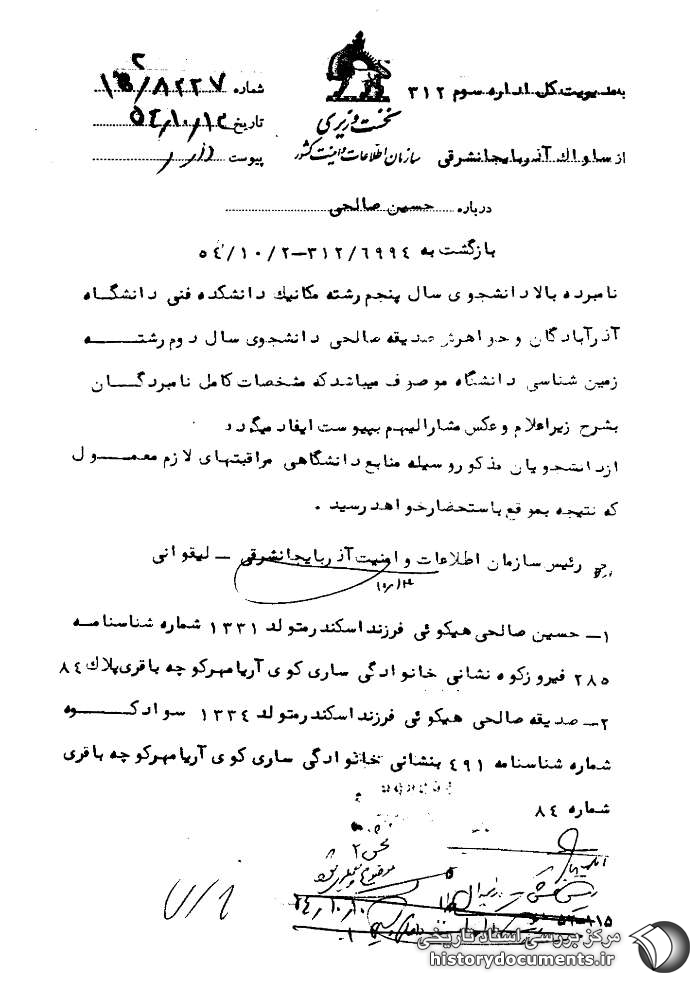 به مدیریت کل اداره سوم ۳۱۲
نخست وزیری
سازمان اطلاعات و امنیت کشور
شماره ۸۲۲۲۷/
تاریخ ۵۴/۱۰/۱۳
از ساواک آذربایجانشرقی
پیوست دارد
درباره حسین صالحی
بازگشت به ۳۱۲/۶۹۹۴-۵۴/۱۰/۲
نامبرده بالا دانشجوی سال پنجم رشته مکانیک دانشکده فنی دانشگاه
آذرآبادگان و خواهرش صدیقه صالحی دانشجوی سال دوم رشتـــــه
زمین شناسی دانشگاه موصوف میباشد که مشخصات کامل نامبردگـــان
بشرح زیر اعلام و عکس مشارالیهم بپیوست ایفاد میگردد
از دانشجویان مذکور وسیله منابع دانشگاهی مراقبتهای لازم معمـــول
که نتیجه بموقع باستحضار خواهد رسید .
رئیس سازمان اطلاعات و امنیت آذربایجانشرقی – لیقوانی
۱۰/۱۳
۱– حسین صالحی هیکوئی فرزند اسکندر متولد ۱۳۳۱ شماره شناسنامه
۲۸۵ فیروزکوه نشانی خانوادگی ساری کوی آریامهر کوچه باقری پلاک ۸۴
۲– صدیقه صالحی هیکوئی فرزند اسکندر متولد ۱۳۳۴ سوادکـــوه
شماره شناسنامه ۴۹۱ بنشانی خانوادگی ساری کوی آریامهر کوچه باقری
شماره ۸۴
بخش ۲
مرکز بررسی اسناد تاریخی
historydocuments.ir